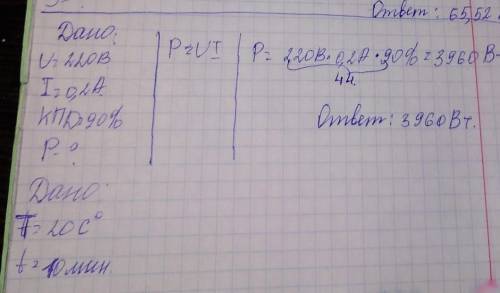 Ответ: 65,52.
Дано:
U=220В
I=0,2А
КПД=90%
P-?
P=UI
P= 220В·0,2А·90%=3960В
44
Ответ: 3960Вт.
Дано:
T=20С°
t=10мин